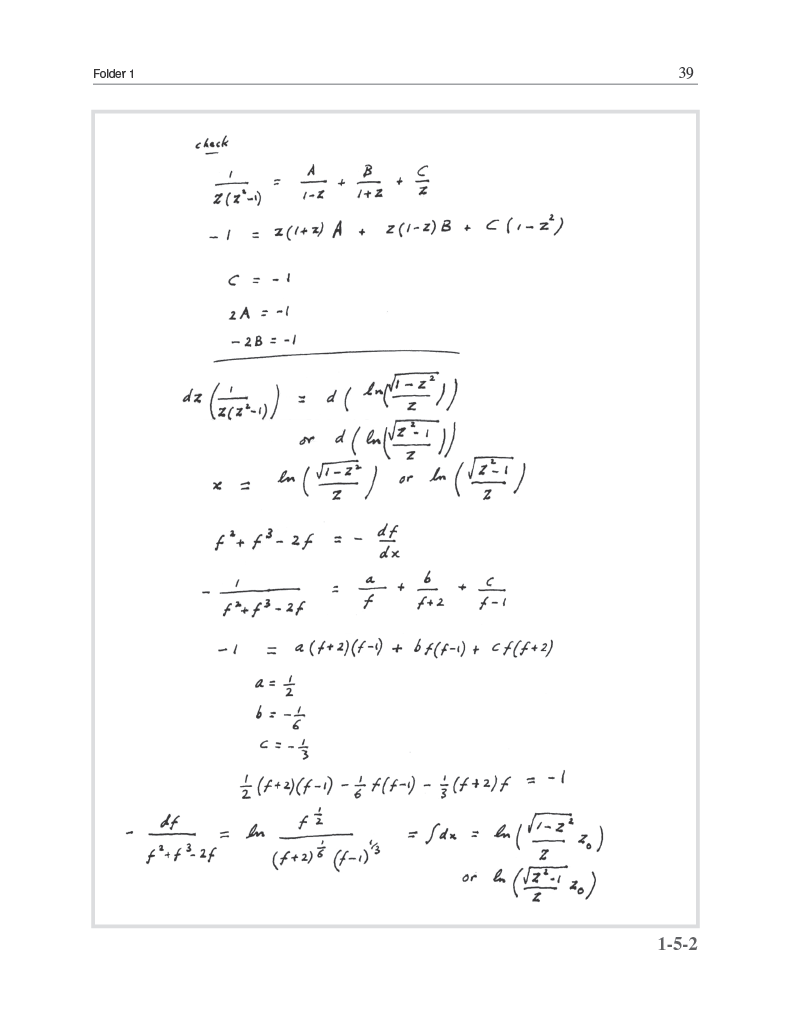 Folder 1 39
check
1/(z(z²-1)) = A/(1-z) + B/(1+z) + C/z
-1 = z(1+z) A + z(1-z) B + C (1-z²)
C = -1
2A = -1
-2B = -1
dz (1/(z(z²-1))) = d ( ln(√(1-z²)/z))
or d ( ln(√(z²-1)/z))
x = ln (√(1-z²)/z) or ln (√(z²-1)/z)
f² + f³ - 2f = - df/dx
- 1/(f²+f³-2f) = a/f + b/(f+2) + c/(f-1)
-1 = a(f+2)(f-1) + bf(f-1) + cf(f+2)
a = 1/2
b = -1/6
c = -1/3
1/2 (f+2)(f-1) - 1/6 f(f-1) - 1/3 (f+2)f = -1
- df/(f²+f³-2f) = ln f^(1/2)/((f+2)^(1/6) (f-1)^(1/3)) = ∫dx = ln (√(1-z²)/z z₀)
or ln (√(z²-1)/z z₀)
1-5-2